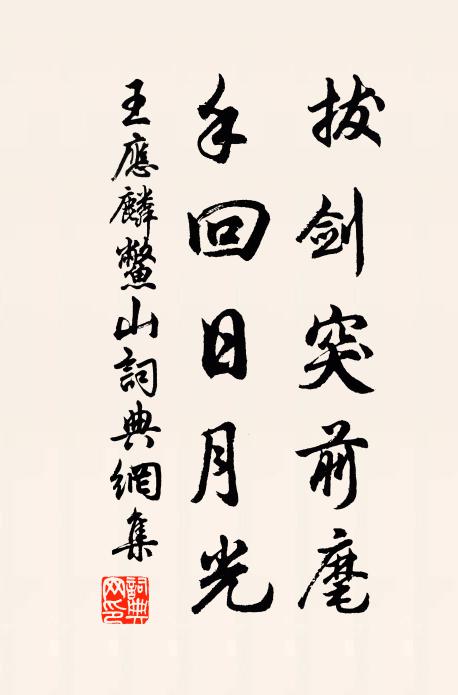 拔剑突前麾
手回日月光
王應麟鳖山詞典網集
詞典网印